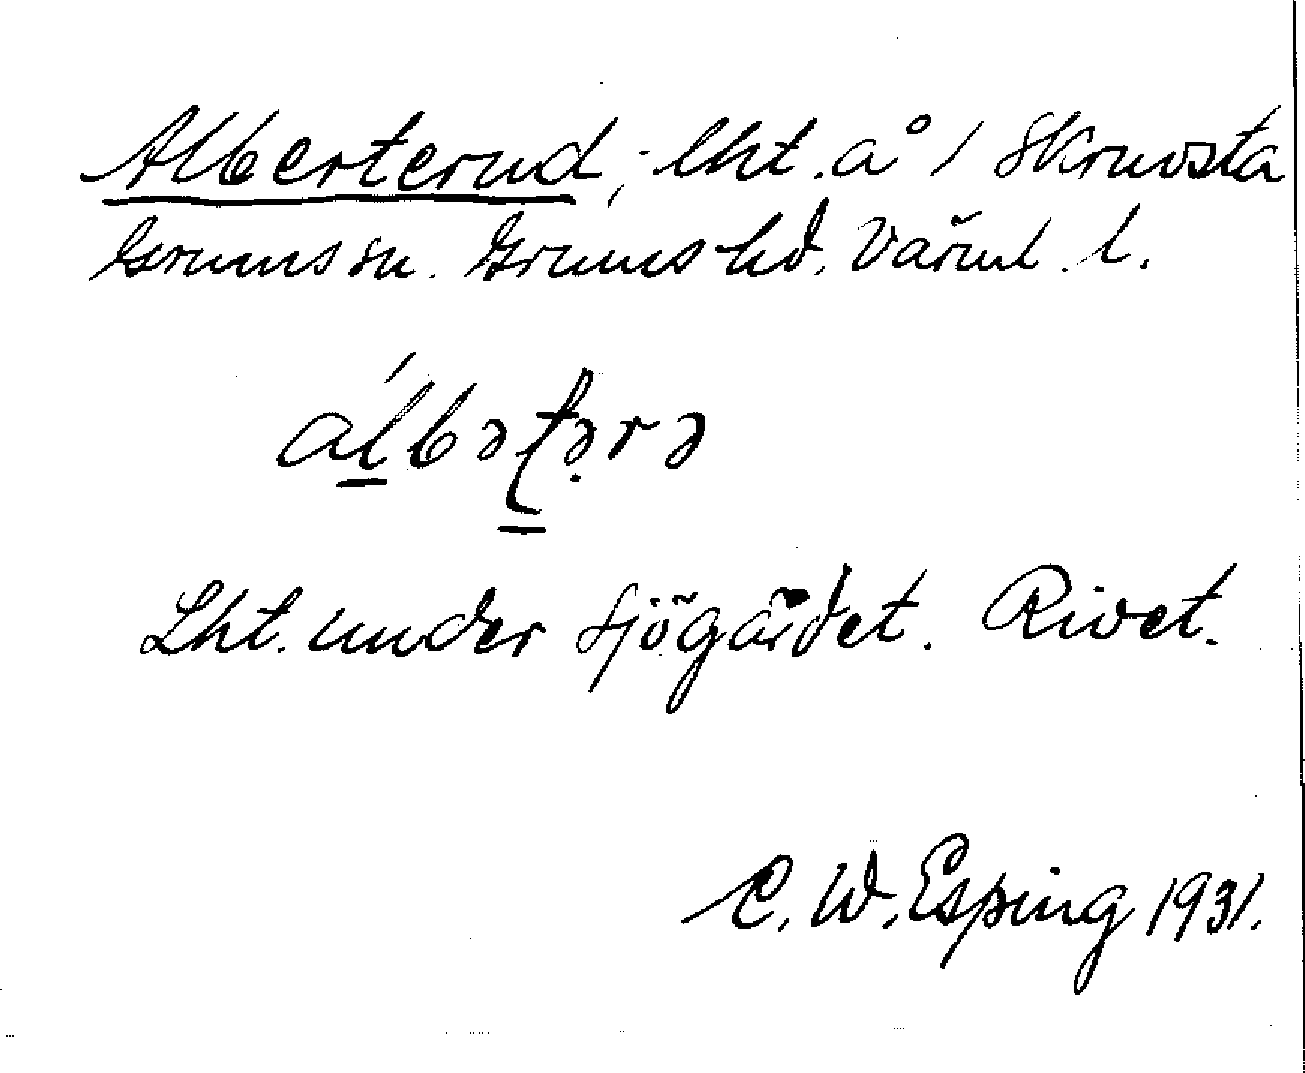 Alberterud, lht. å 1 Skruvsta
Grums sn. Grums hd. Värml. l.
álbəʈə̣rə
Lht. under Sjögärdet. Rivet.
C. W. Esping 1931.